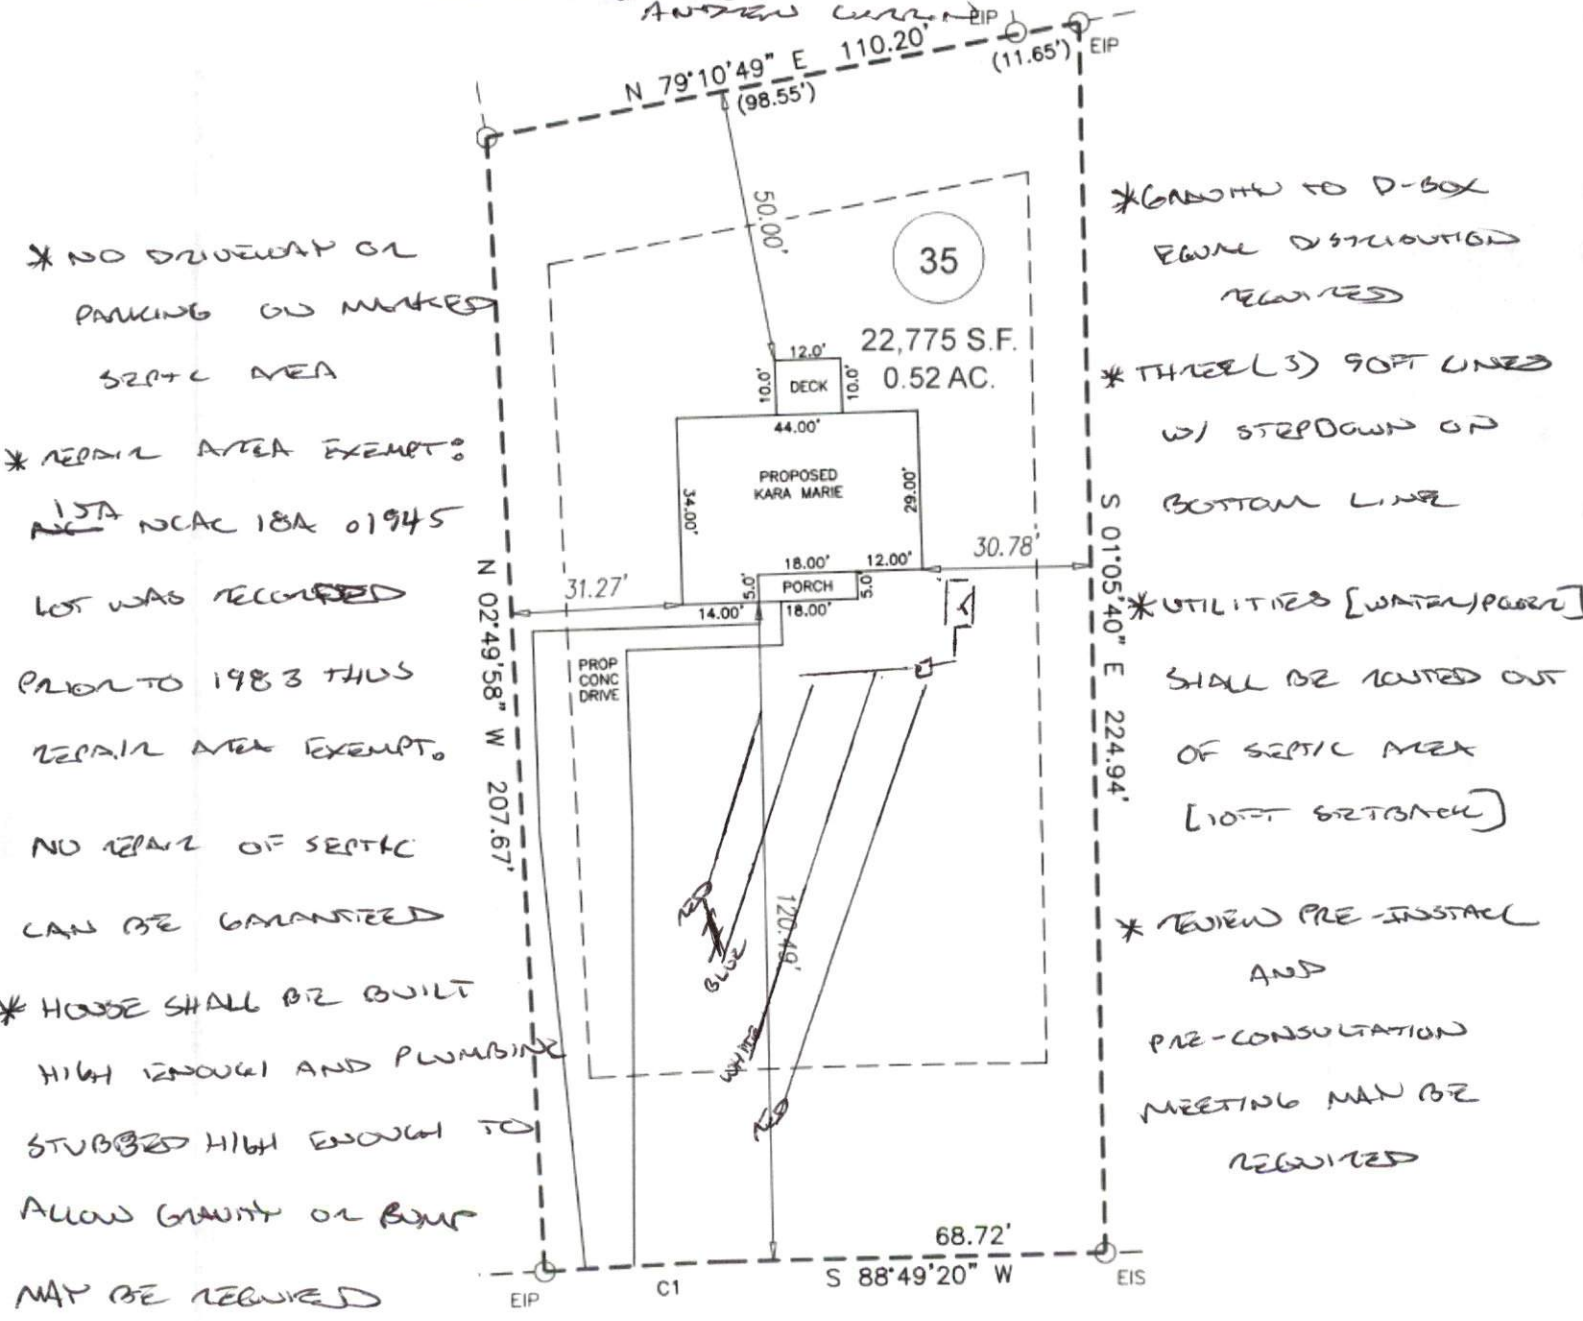 ANDREW CURRIN
EIP
N 79°10'49" E 110.20'
(98.55')
(11.65')
EIP
50.00'
35
22,775 S.F.
0.52 AC.
12.0'
10.0'
DECK
10.0'
44.00'
PROPOSED
KARA MARIE
34.00'
29.00'
18.00'
12.00'
30.78'
31.27'
5.0'
PORCH
5.0'
14.00'
18.00'
PROP
CONC
DRIVE
N 02°49'58" W 207.67'
S 01°05'40" E 224.94'
120.49'
RED
BLUE
WHITE
RED
68.72'
S 88°49'20" W
C1
EIP
EIS
* NO DRIVEWAY OR
PARKING ON MARKED
SEPTIC AREA
* REPAIR AREA EXEMPT:
15A NCAC 18A .01945
LOT WAS RECORDED
PRIOR TO 1983 THUS
REPAIR AREA EXEMPT.
NO REPAIR OF SEPTIC
CAN BE GARANTEED
* HOUSE SHALL BE BUILT
HIGH ENOUGH AND PLUMBING
STUBBED HIGH ENOUGH TO
ALLOW GRAVITY OR PUMP
MAY BE REQUIRED
* GRAVITY TO D-BOX
EQUAL DISTRIBUTION
REQUIRED
* THREE (3) 90FT LINES
W/ STEPDOWN ON
BOTTOM LINE
* UTILITIES [WATER/POWER]
SHALL BE ROUTED OUT
OF SEPTIC AREA
[10FT SETBACK]
* REVIEW PRE-INSTALL
AND
PRE-CONSULTATION
MEETING MAY BE
REQUIRED